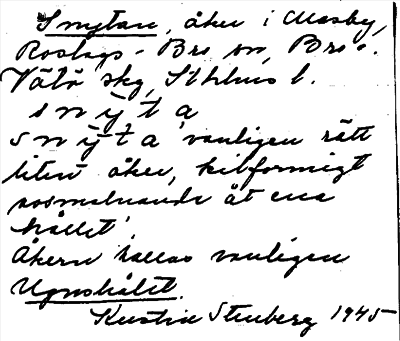 Snytan, åker i Massby,
Roslags-Bro sn, Bro o.
Vätö skg, Sthlms l.
snýta
snýta vanligen rätt
liten åker, kilformigt
avsmalnande åt ena
hållet.
Åkern kallas vanligen
Ugnshålet.
Kerstin Stenberg 1945